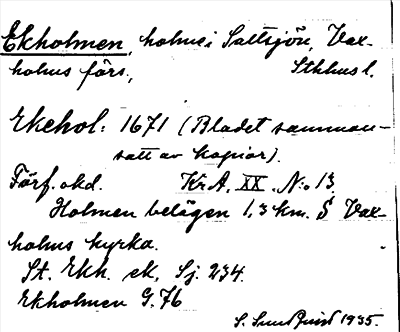 Ekholmen, holme i Saltsjön, Vax-
holms förs., Sthlms l.
Ekehol: 1671 (Bladet samman-
satt av kopior).
Förf. okd. KrA, XX. N:o 13.
Holmen belägen 1,3 km. S Vax-
holms kyrka.
St. Ekh. ek, Sj. 234.
Ekholmen G. 76
S. Sundquist 1935.